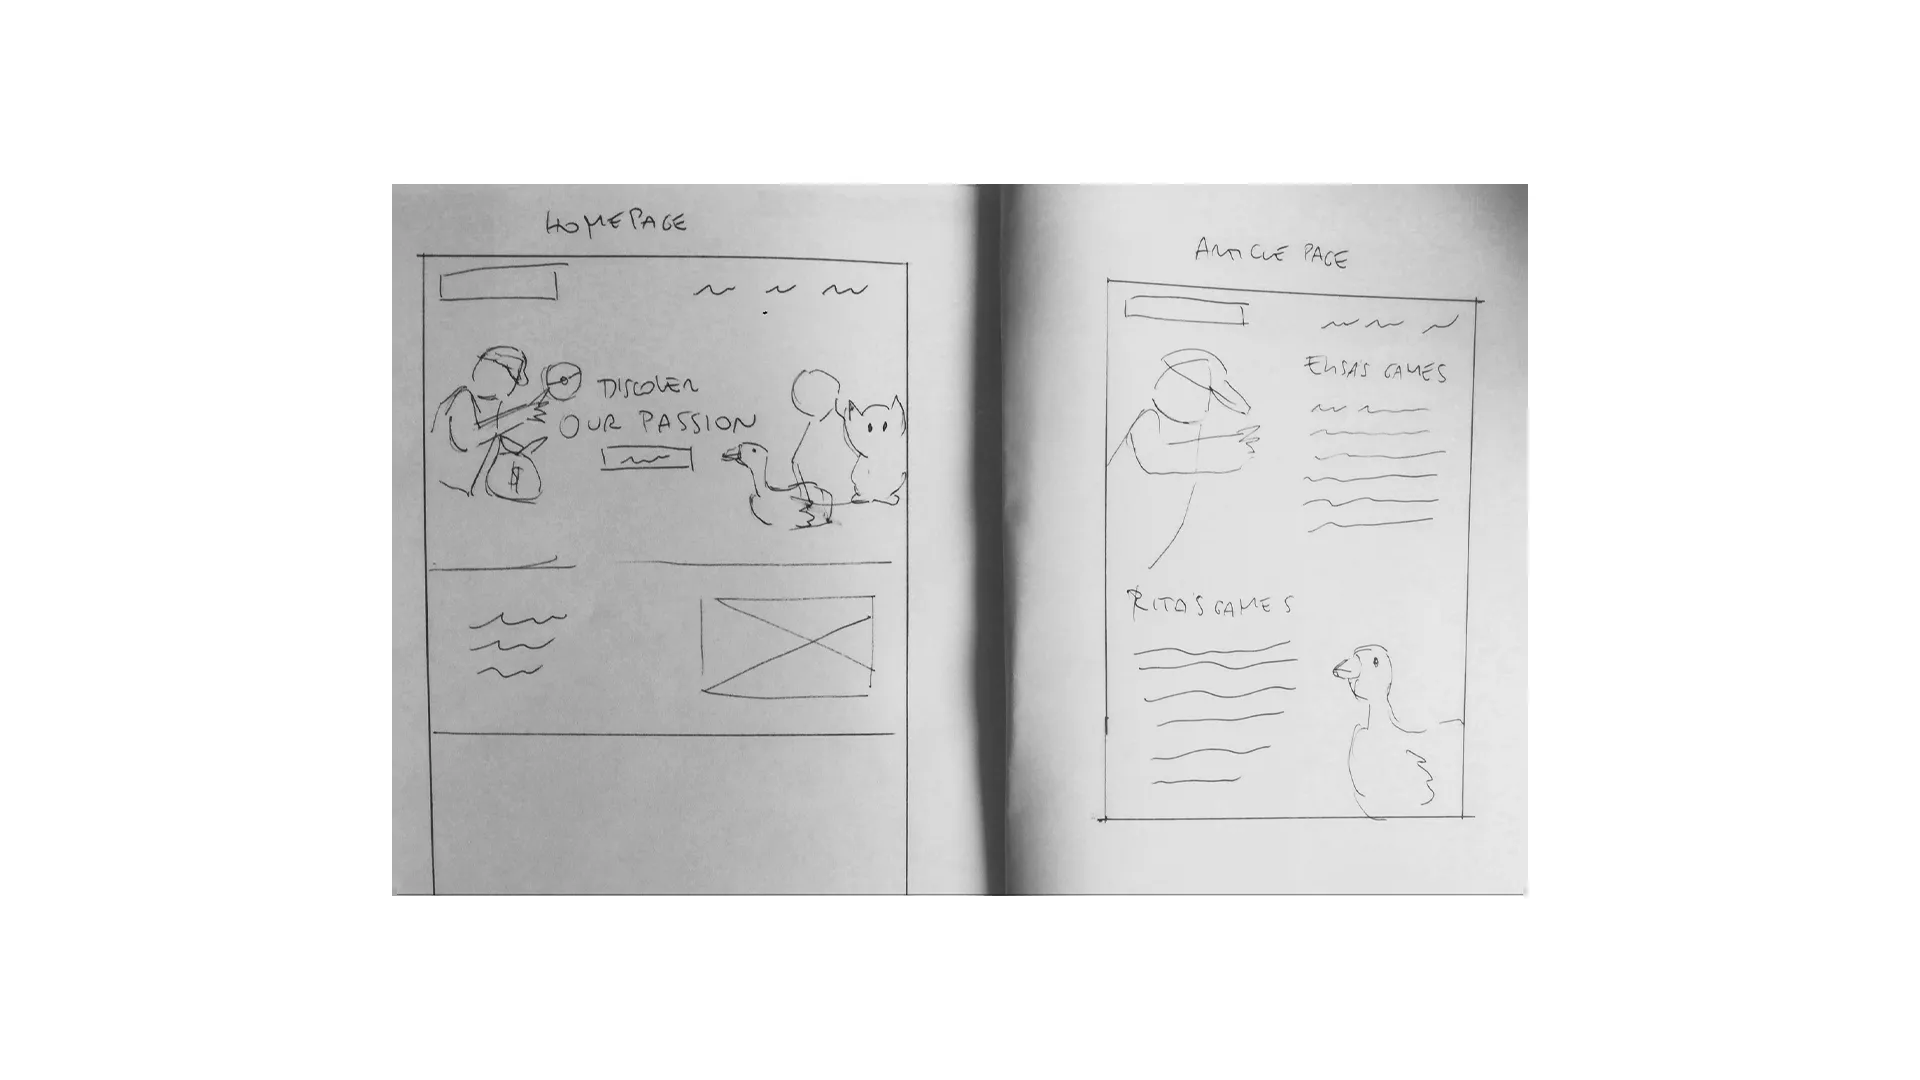 HOMEPAGE
DISCOVER
OUR PASSION
$
ARTICLE PAGE
ELISA'S GAMES
RITA'S GAMES